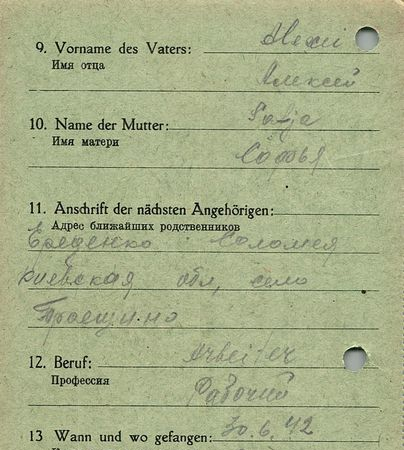 9. Vorname des Vaters: Alexi
Имя отца
Алексей
10. Name der Mutter: Sofja
Имя матери
Софья
11. Anschrift der nächsten Angehörigen:
Адрес ближайших родственников
Ереденко Соломея
Киевская обл, село
Троещино
12. Beruf: Arbeiter
Профессия
Рабочий
13 Wann und wo gefangen: 30.6.42